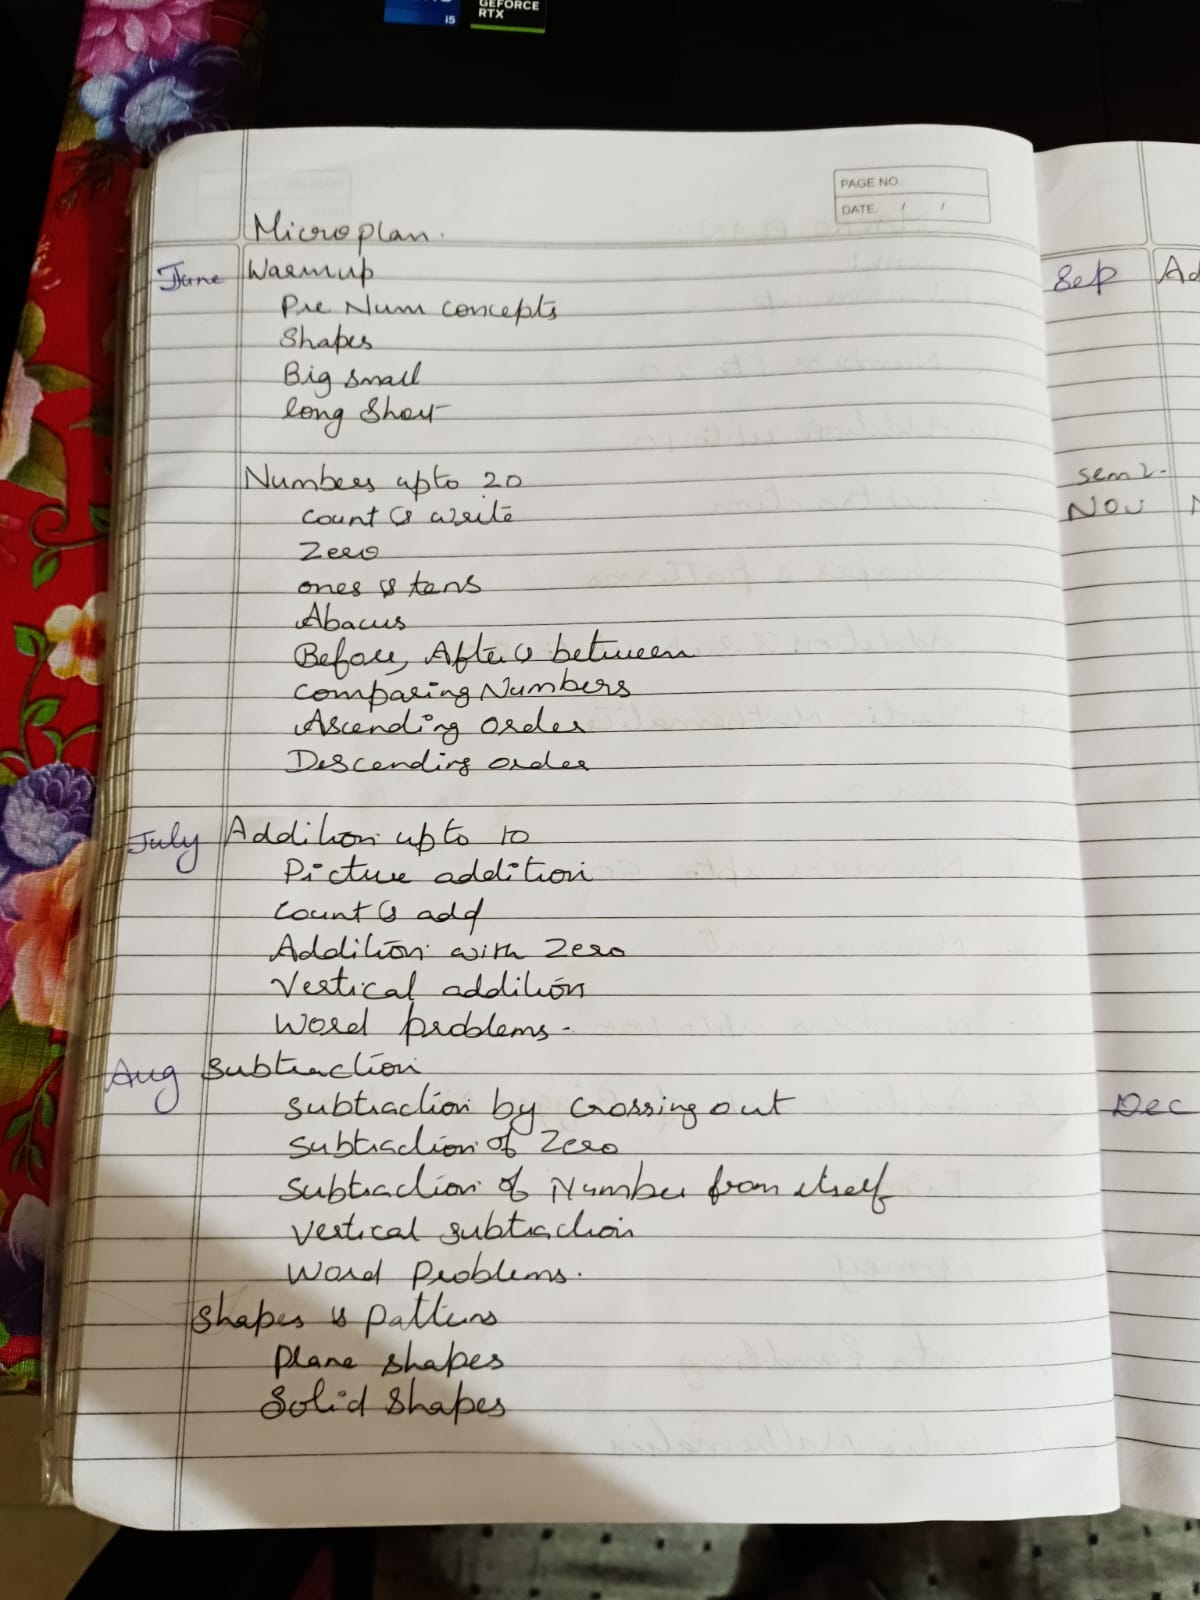 i5
GEFORCE
RTX
PAGE NO.
DATE / /
Microplan.
June Warmup
Pre Num concepts
Shapes
Big small
long Short
Numbers upto 20
count & write
Zero
ones & tens
Abacus
Before, After & between
comparing Numbers
Ascending order
Descending order
July Addition upto 10
Picture addition
Count & add
Addition with Zero
Vertical addition
Word problems.
Aug Subtraction
Subtraction by Crossing out
Subtraction of Zero
Subtraction of Number from itself
Vertical subtraction
Word Problems.
Shapes & Patterns
Plane shapes
Solid Shapes
Sep Ad
sem 2.
Nov
Dec